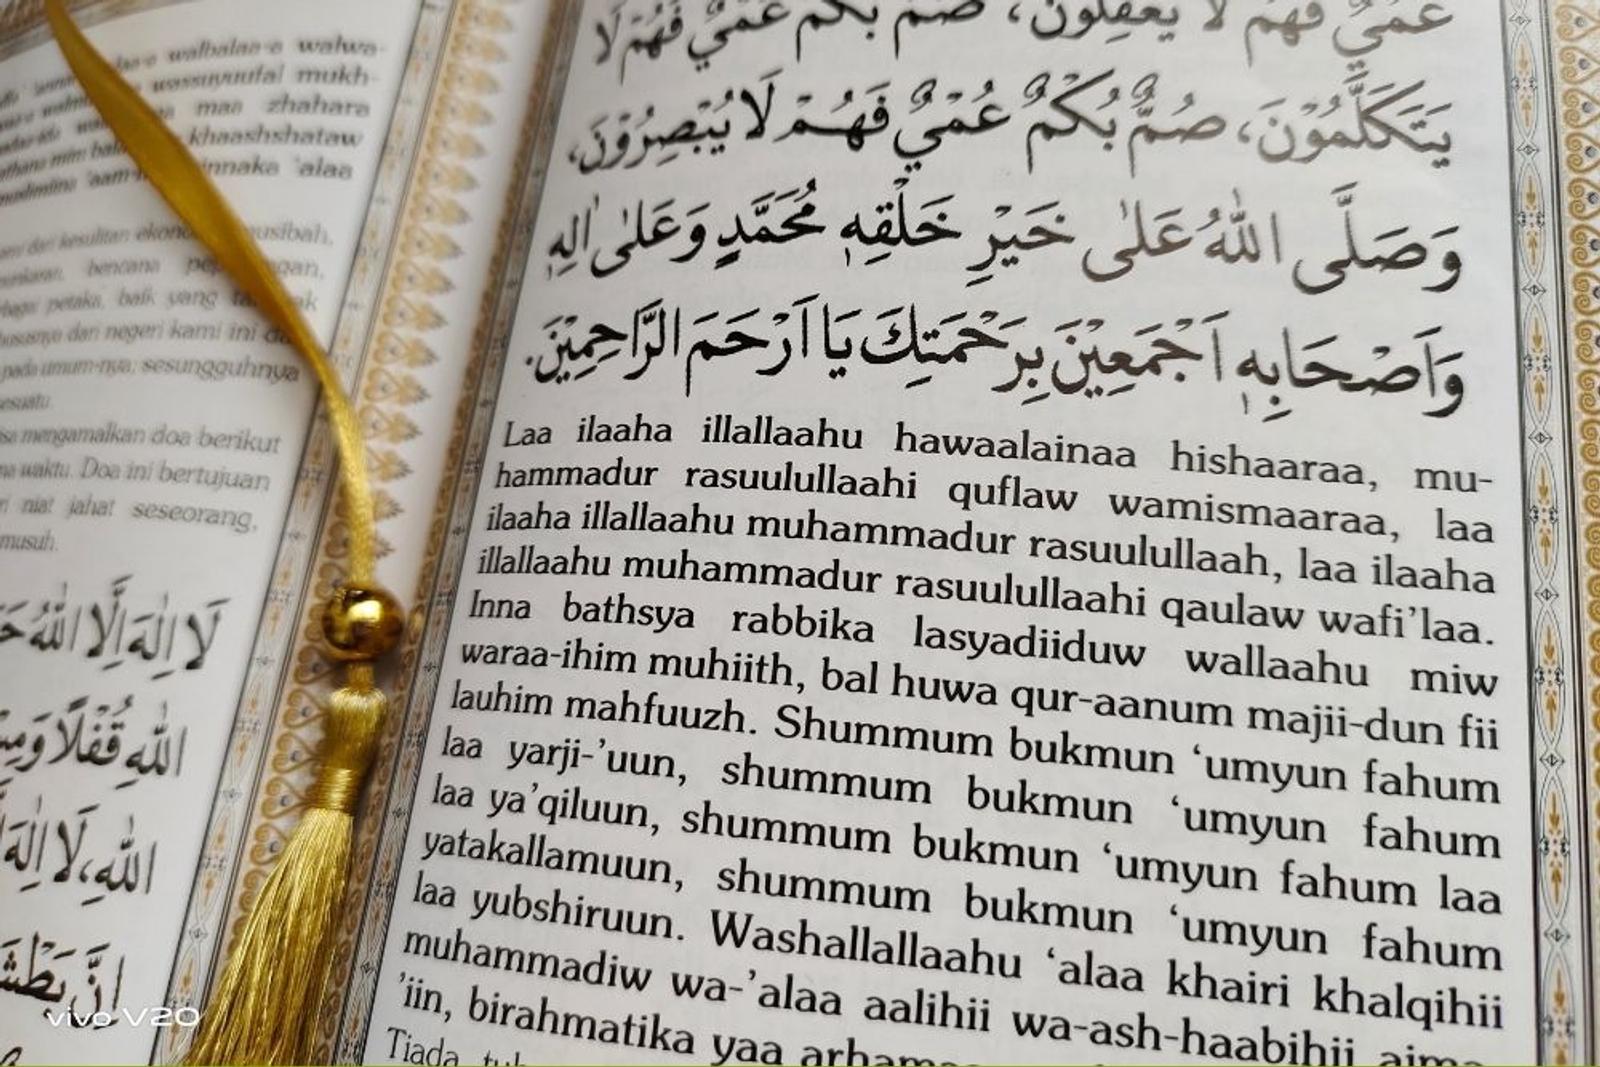 walbalaa-a walwa-
wassuyuufal mukh-
maa zhahara
khaashshataw
innaka 'alaa
dari kesulitan ekono usibah,
bencana pe gan,
petaka, baik yang ta ak
dari negeri kami ini da
pada umum-nya; sesungguhnya
esuatu.
mengamalkan doa berikut
waktu. Doa ini bertujuan
niat jahat seseorang,
musuh.
لَا اِلٰهَ اِلَّا اللهُ
اللهِ قُفْلًا
اللهِ، لَا اِلٰهَ
اِنَّ بَطْشَ
عُمْيٌ فَهُمْ لَا يَعْقِلُوْنَ، صُمٌّ بُكْمٌ عُمْيٌ فَهُمْ لَا
يَتَكَلَّمُوْنَ، صُمٌّ بُكْمٌ عُمْيٌ فَهُمْ لَا يُبْصِرُوْنَ،
وَصَلَّى اللهُ عَلٰى خَيْرِ خَلْقِهٖ مُحَمَّدٍ وَعَلٰى اٰلِهٖ
وَاَصْحَابِهٖ اَجْمَعِيْنَ بِرَحْمَتِكَ يَا اَرْحَمَ الرَّاحِمِيْنَ.
Laa ilaaha illallaahu hawaalainaa hishaaraa, mu-
hammadur rasuulullaahi quflaw wamismaaraa, laa
ilaaha illallaahu muhammadur rasuulullaah, laa ilaaha
illallaahu muhammadur rasuulullaahi qaulaw wafi'laa.
Inna bathsya rabbika lasyadiiduw wallaahu miw
waraa-ihim muhiith, bal huwa qur-aanum majii-dun fii
lauhim mahfuuzh. Shummum bukmun 'umyun fahum
laa yarji-'uun, shummum bukmun 'umyun fahum
laa ya'qiluun, shummum bukmun 'umyun fahum laa
yatakallamuun, shummum bukmun 'umyun fahum
laa yubshiruun. Washallallaahu 'alaa khairi khalqihii
muhammadiw wa-'alaa aalihii wa-ash-haabihii ajma-
'iin, birahmatika yaa arhama
Tiada
vivo V20